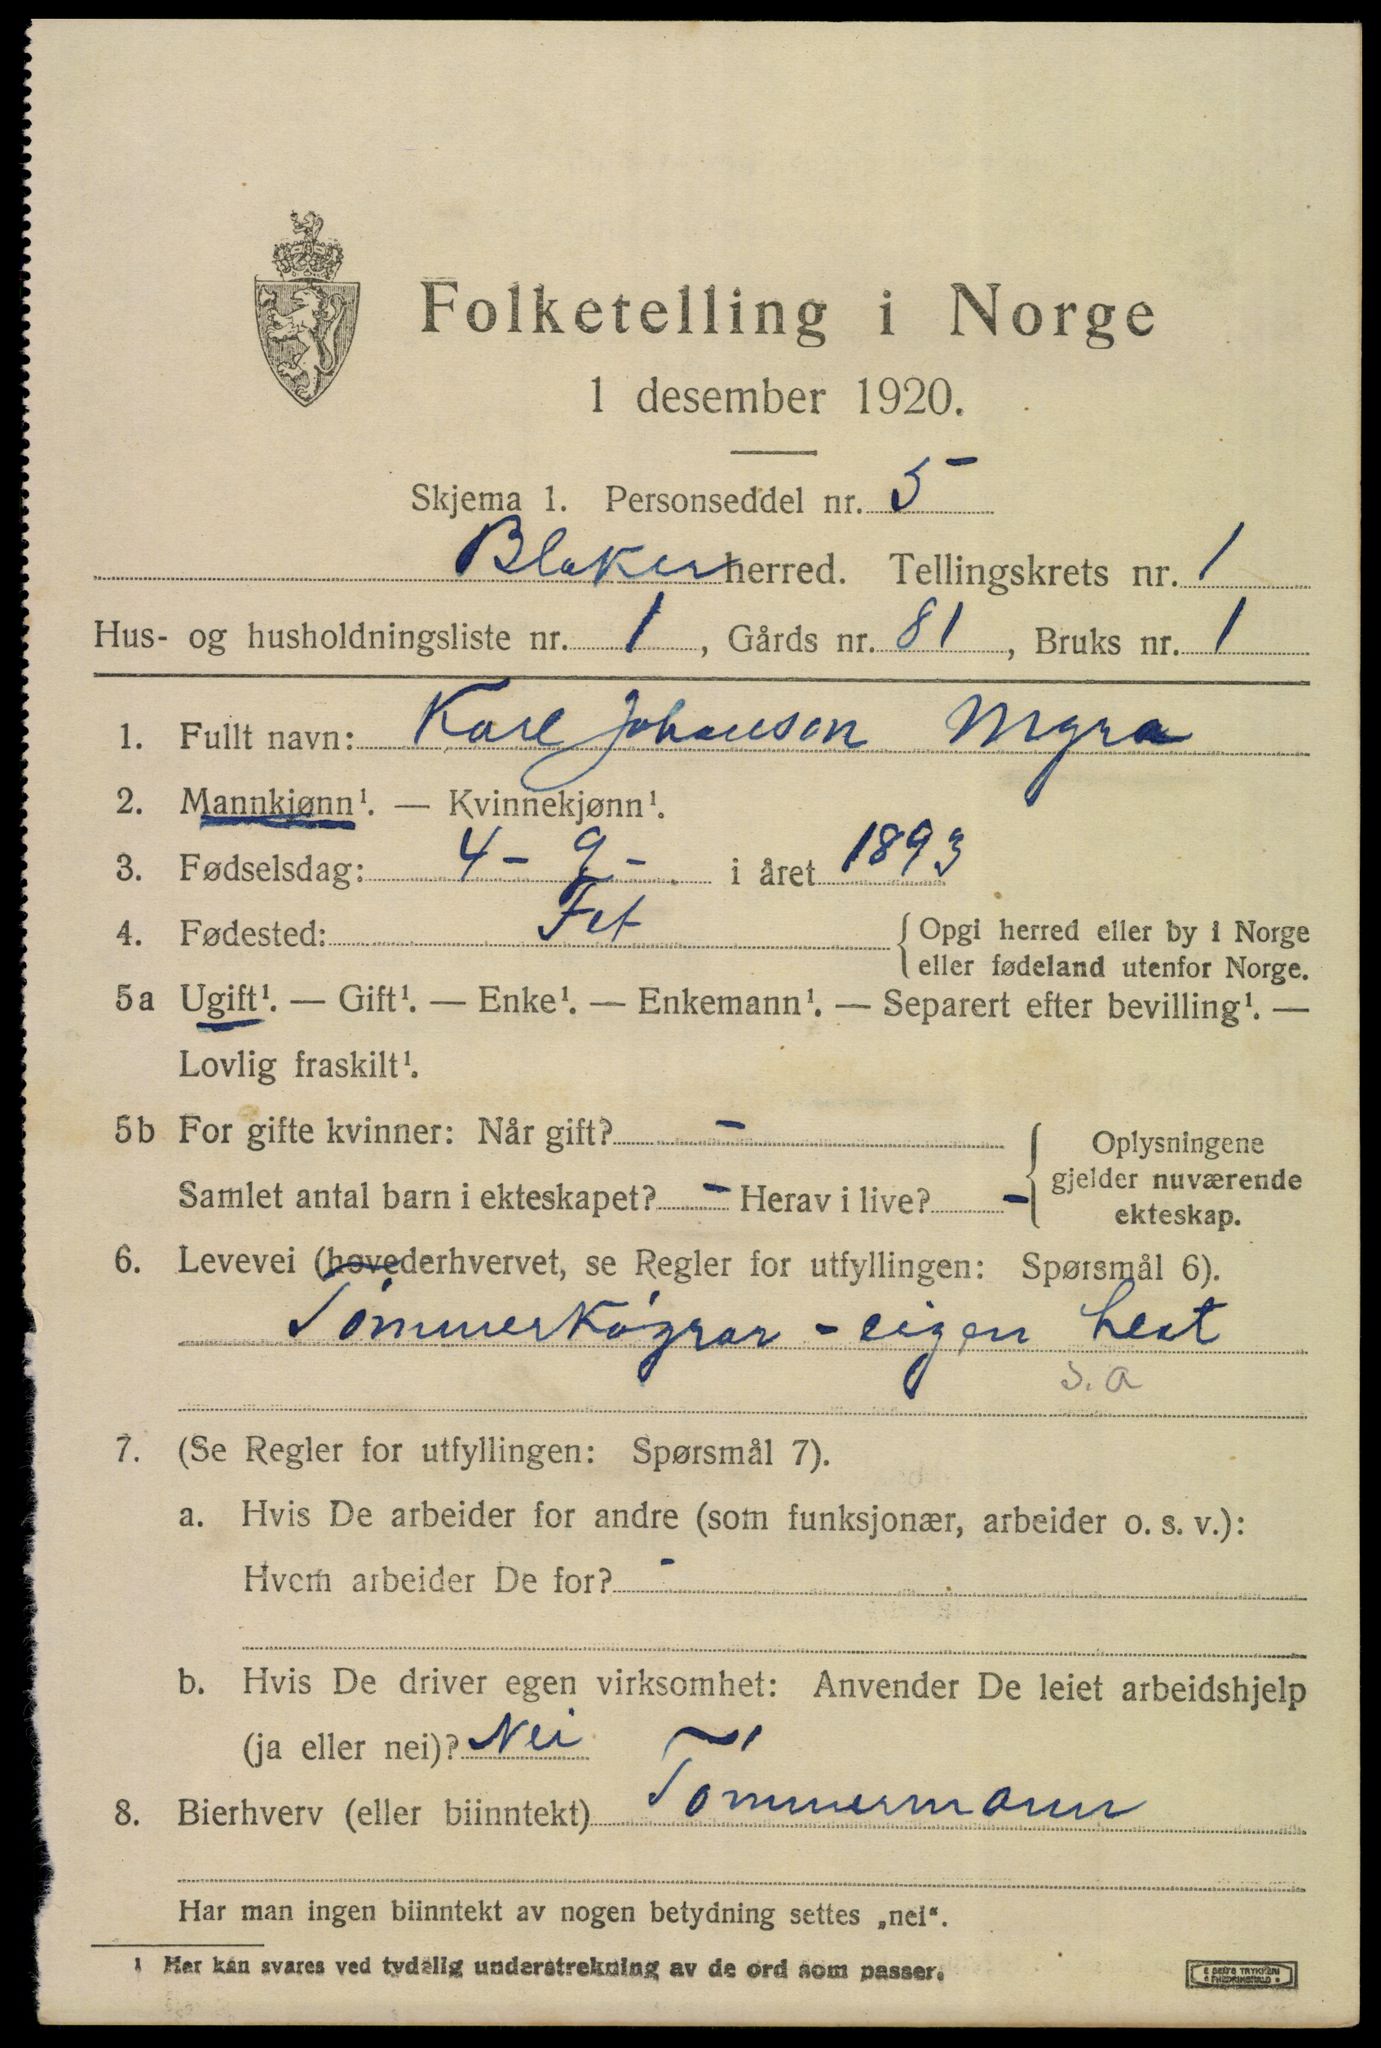 Folketelling i Norge
1 desember 1920.
Skjema 1. Personseddel nr. 5
Blaker herred. Tellingskrets nr. 1
Hus- og husholdningsliste nr. 1, Gårds nr. 81, Bruks nr. 1
1. Fullt navn: Karl Johansen Myra
2. Mannkjønn¹. — Kvinnekjønn¹.
3. Fødselsdag: 4 - 9 - i året 1893
4. Fødested: Fet { Opgi herred eller by i Norge
eller fødeland utenfor Norge.
5a Ugift¹. — Gift¹. — Enke¹. — Enkemann¹. — Separert efter bevilling¹. —
Lovlig fraskilt¹.
5b For gifte kvinner: Når gift? - { Oplysningene
gjelder nuværende
Samlet antal barn i ekteskapet? - Herav i live? - ekteskap.
6. Levevei (hovederhvervet, se Regler for utfyllingen: Spørsmål 6).
Tömmerkögrar - eigen hest
s. a
7. (Se Regler for utfyllingen: Spørsmål 7).
a. Hvis De arbeider for andre (som funksjonær, arbeider o. s. v.):
Hvem arbeider De for? -
b. Hvis De driver egen virksomhet: Anvender De leiet arbeidshjelp
(ja eller nei)? Nei
8. Bierhverv (eller biinntekt) Tömmermann
Har man ingen biinntekt av nogen betydning settes „nei“.
1 Her kan svares ved tydelig understrekning av de ord som passer.